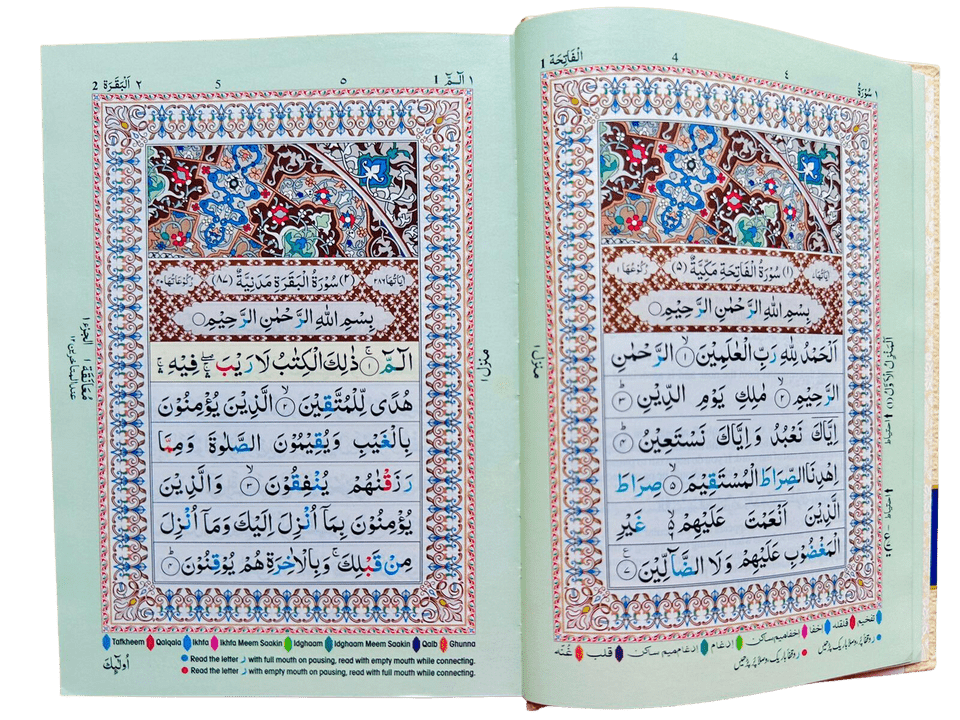 الْفَاتِحَة 1
4
٤
١ سُوْرَةُ
اٰيَاتُهَا٧
(١) سُوْرَةُ الْفَاتِحَةِ مَكِّيَّةٌ (٥)
رُكُوْعُهَا١
بِسْمِ اللّٰهِ الرَّحْمٰنِ الرَّحِيْمِ
اَلْحَمْدُ لِلّٰهِ رَبِّ الْعٰلَمِيْنَ ۙ١ الرَّحْمٰنِ
الرَّحِيْمِ ۙ٢ مٰلِكِ يَوْمِ الدِّيْنِ ؕ٣
اِيَّاكَ نَعْبُدُ وَاِيَّاكَ نَسْتَعِيْنُ ؕ٤
اِهْدِنَا الصِّرَاطَ الْمُسْتَقِيْمَ ۙ٥ صِرَاطَ
الَّذِيْنَ اَنْعَمْتَ عَلَيْهِمْ ۙ۬٦ غَيْرِ
الْمَغْضُوْبِ عَلَيْهِمْ وَلَا الضَّآلِّيْنَ ࣖ٧
منزل ١
اَلْمَنْزِلُ الْاَوَّلُ (١)
تفخیم قلقله اخفا اخفامیم ساکن ادغام ادغام میم ساکن قلب غُنّه
١ الٓمّٓ 1
٥
5
٢ اَلْبَقَرَة 2
اٰيَاتُهَا٢٨٦
(٢) سُوْرَةُ الْبَقَرَةِ مَدَنِيَّةٌ (٨٧)
رُكُوْعَاتُهَا٤٠
بِسْمِ اللّٰهِ الرَّحْمٰنِ الرَّحِيْمِ
الٓمّٓ ۚ١ ذٰلِكَ الْكِتٰبُ لَا رَيْبَ ۛۖ فِيْهِ ۛۚ
هُدًى لِّلْمُتَّقِيْنَ ۙ٢ الَّذِيْنَ يُؤْمِنُوْنَ
بِالْغَيْبِ وَيُقِيْمُوْنَ الصَّلٰوةَ وَمِمَّا
رَزَقْنٰهُمْ يُنْفِقُوْنَ ۙ٣ وَالَّذِيْنَ
يُؤْمِنُوْنَ بِمَآ اُنْزِلَ اِلَيْكَ وَمَآ اُنْزِلَ
مِنْ قَبْلِكَ ۚ وَبِالْاٰخِرَةِ هُمْ يُوْقِنُوْنَ ؕ٤
منزل ١
الجزء ١
مُعَانَقَة ١
عند المتاخرین ١٢
Tafkheem Qalqala Ikhfa Ikhfa Meem Saakin Idghaam Idghaam Meem Saakin Qalb Ghunna
Read the letter ر with full mouth on pausing, read with empty mouth while connecting.
Read the letter ر with empty mouth on pausing, read with full mouth while connecting.
اُولٰٓئِكَ